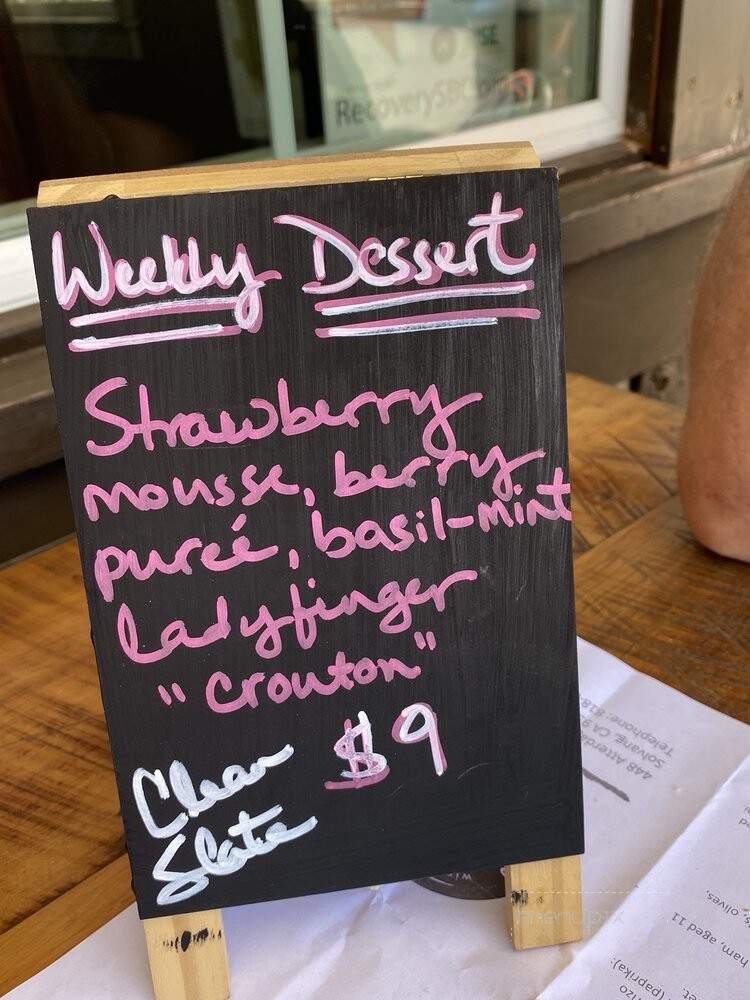 RecoverySBC.com
Weekly Dessert
Strawberry
mousse, berry
pureé, basil-mint
ladyfinger
"crouton"
$9
Clean
Slate
448 Atterda
Solvang, CA 9
Telephone: 818
ham, aged 11
(paprika);